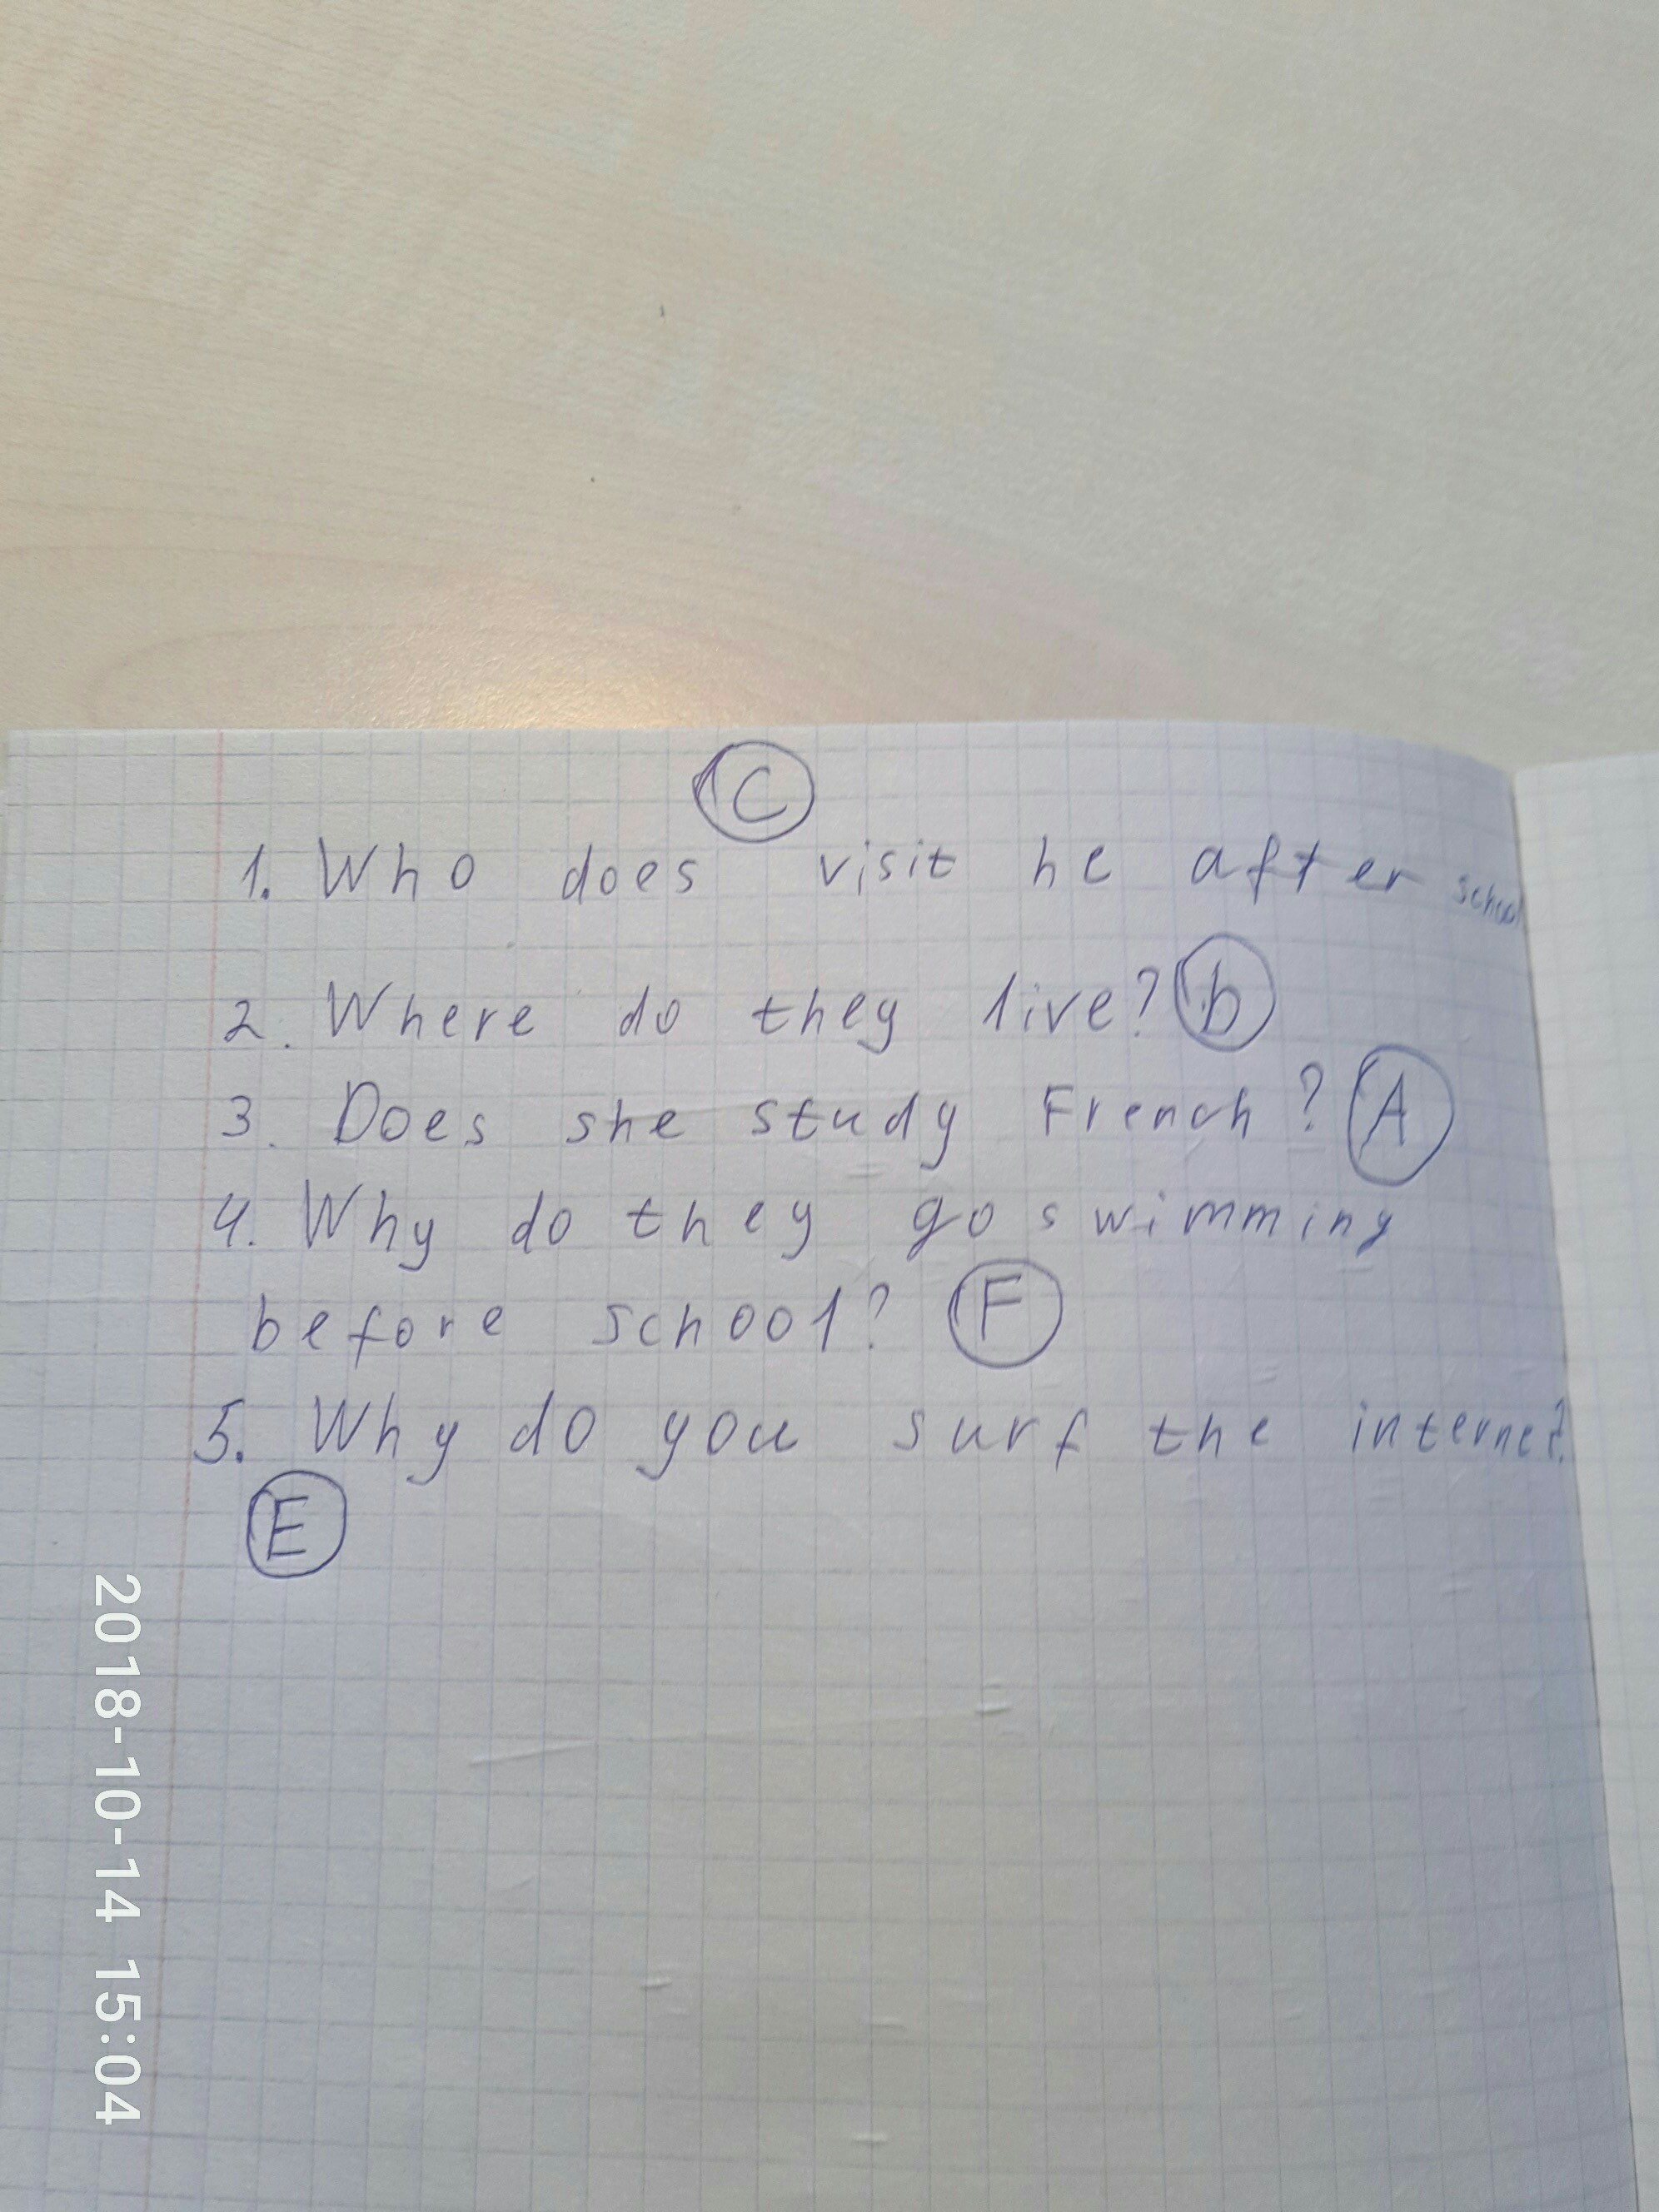 C
1. Who does visit he after school
2. Where do they live? b
3. Does she study French? A
4. Why do they go swimming
before school? F
5. Why do you surf the internet?
E
2018-10-14 15:04